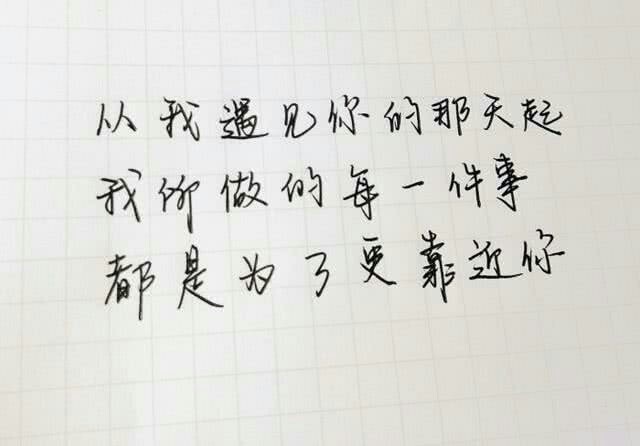 从我遇见你的那天起
我所做的每一件事
都是为了更靠近你